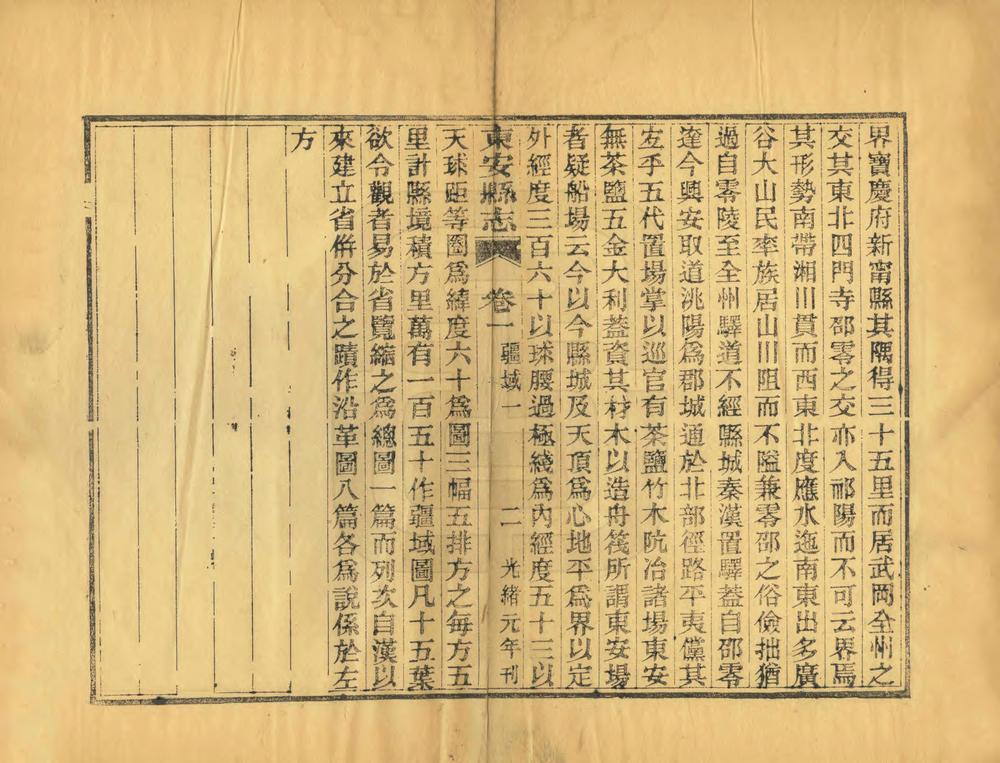 界寶慶府新甯縣其隅得三十五里而居武岡全州之
交其東北四門寺邵零之交亦入祁陽而不可云界焉
其形勢南帶湘川貫而西東北度應水迤南東出多廣
谷大山民率族居山川阻而不隘兼零邵之俗儉拙猶
過自零陵至全州驛道不經縣城秦漢置驛葢自邵零
達今興安取道洮陽爲郡城通於北部徑路平夷儻其
岦乎五代置場掌以巡官有茶鹽竹木阬冶諸場東安
無茶鹽五金大利葢資其材木以造舟筏所謂東安場
者疑船場云今以今縣城及天頂爲心地平爲界以定
外經度三百六十以球腰過極綫爲內經度五十三以
東安縣志 卷一 疆域一 二 光緒元年刊
天球距等圈爲緯度六十爲圖三幅五排方之每方五
里計縣境積方里萬有一百五十作疆域圖凡十五葉
欲令觀者易於省覽縮之爲總圖一篇而列次自漢以
來建立省倂分合之蹟作沿革圖八篇各爲說係於左
方